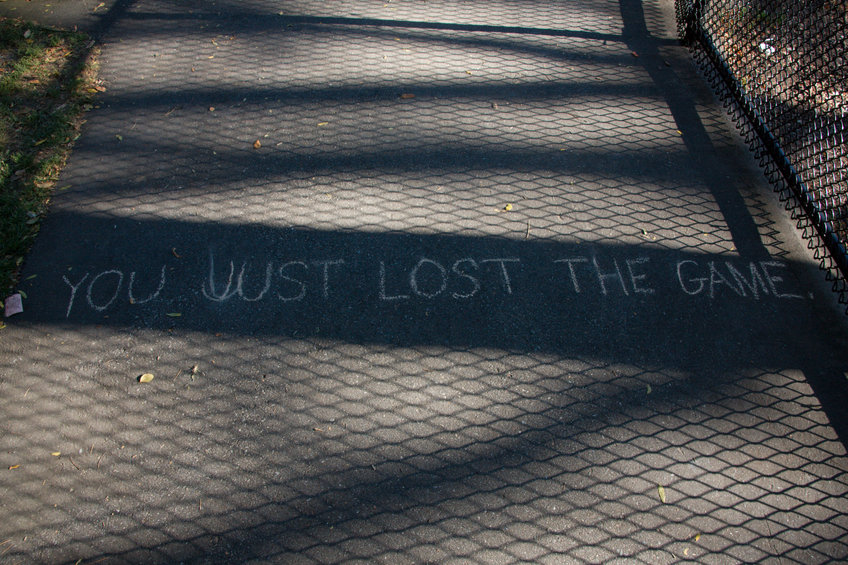 YOU JUST LOST THE GAME.